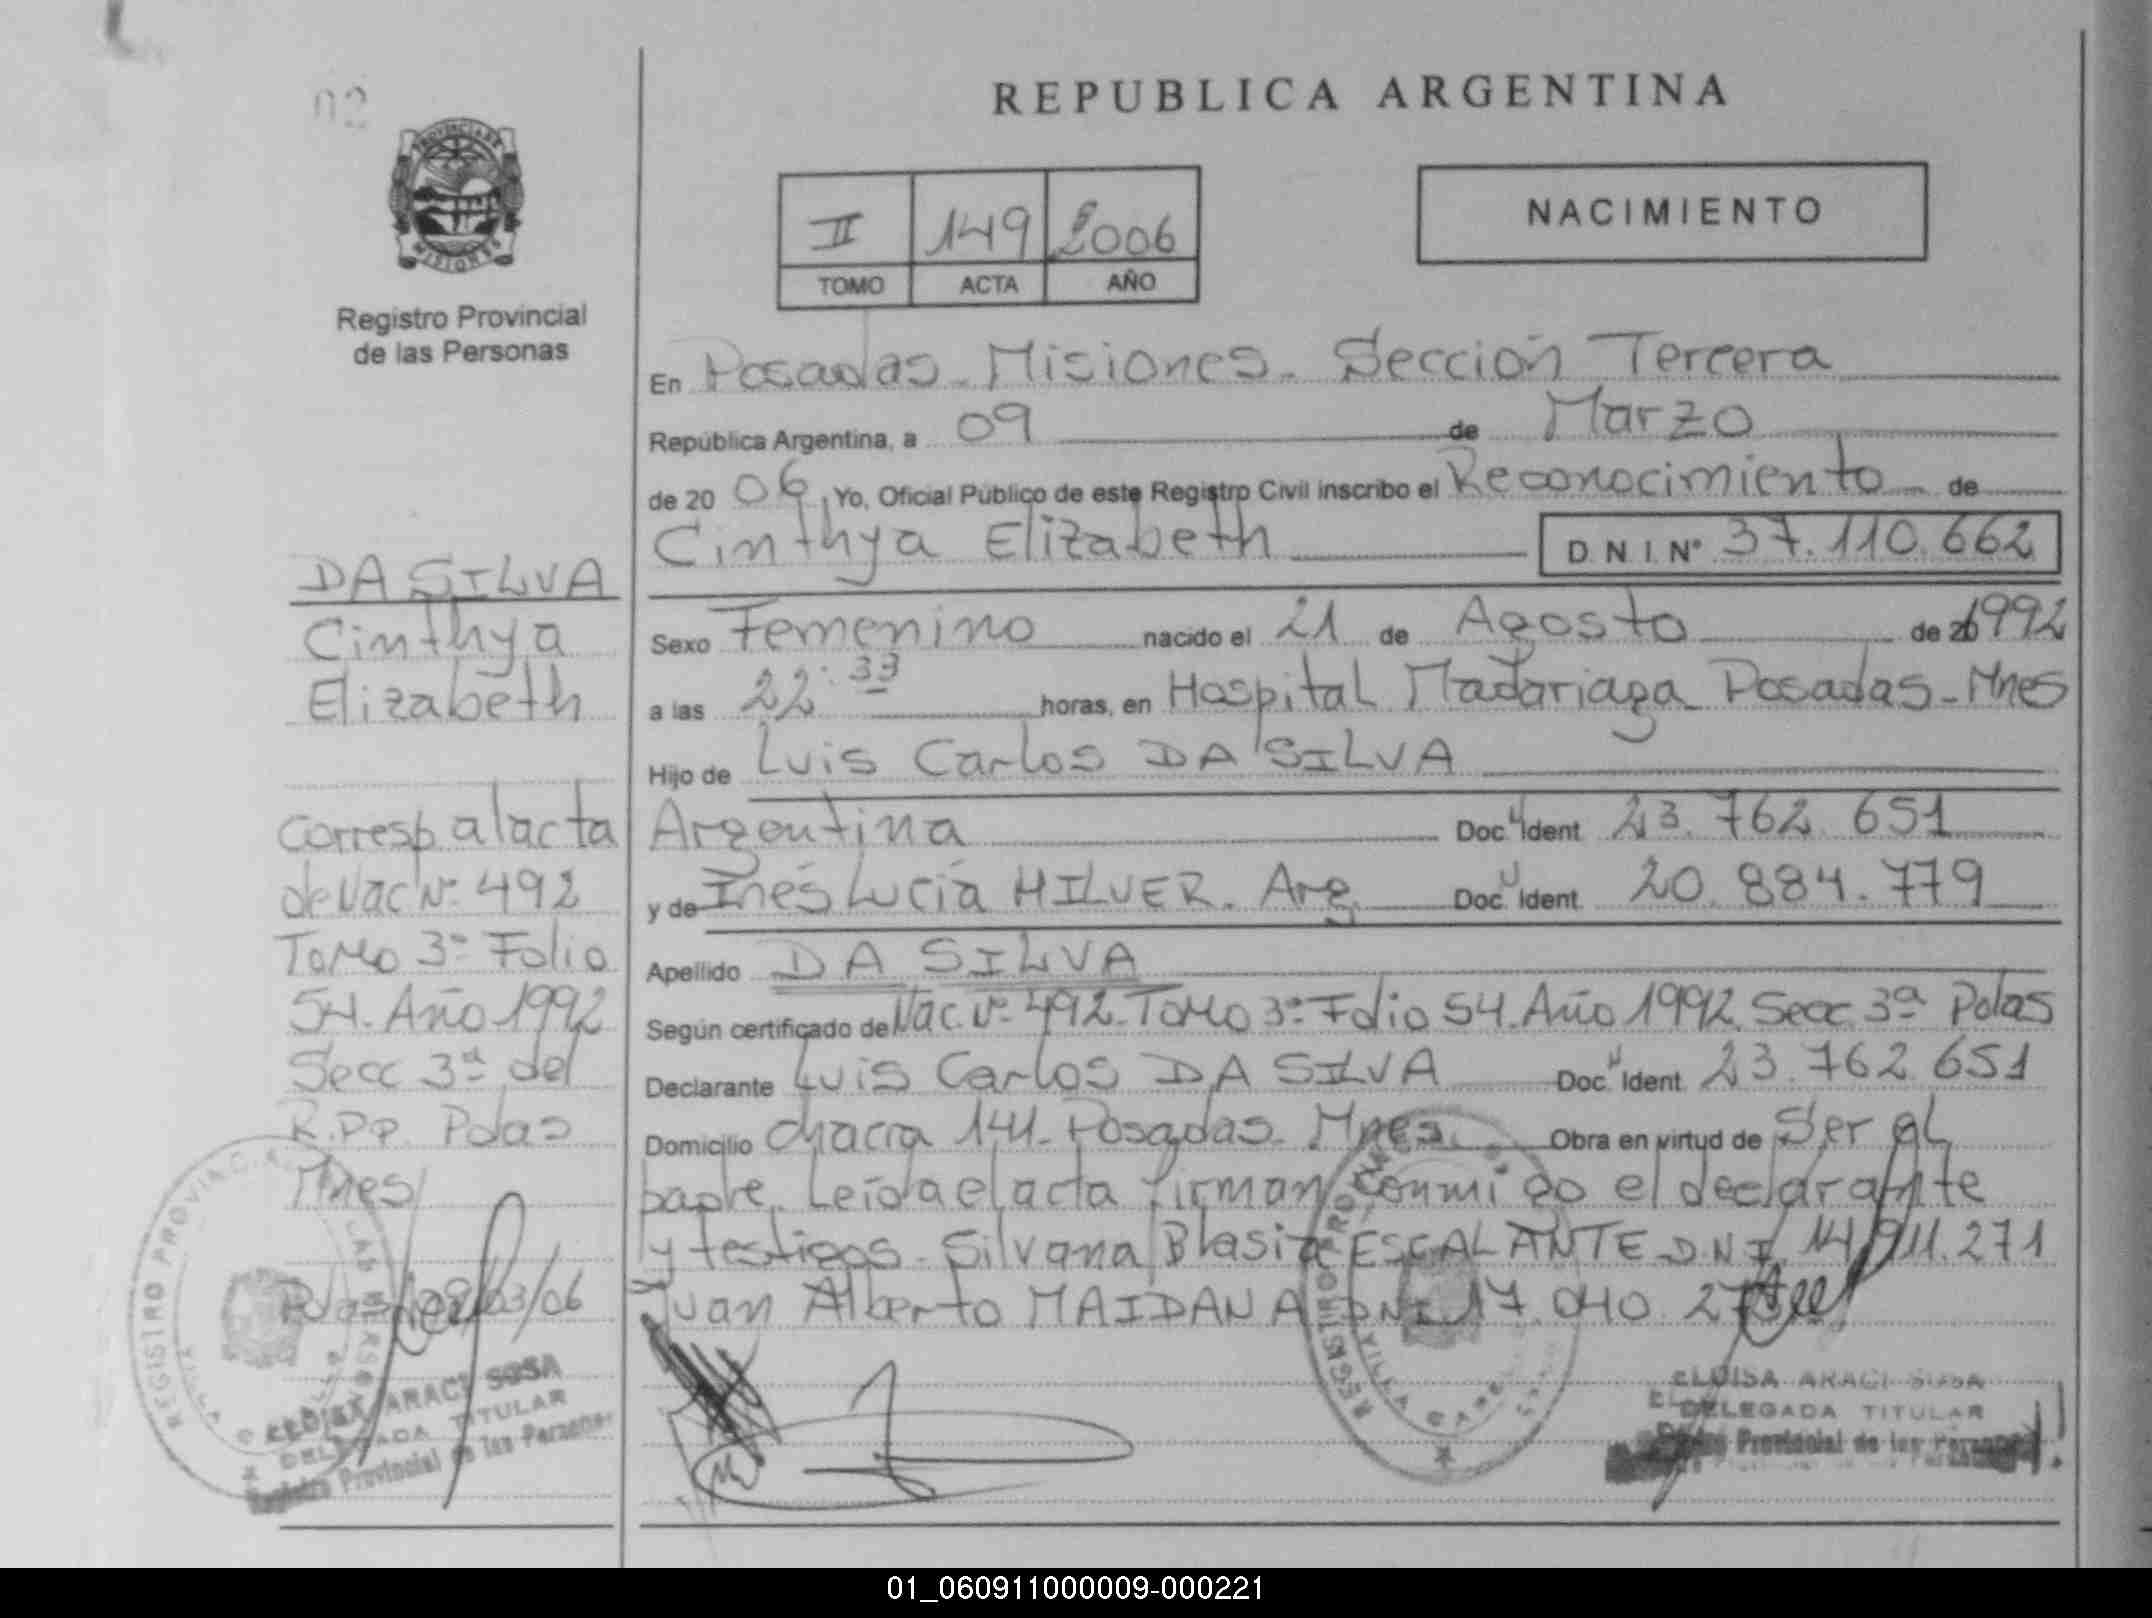 02
PROVINCIA DE
MISIONES
Registro Provincial
de las Personas
DA SILVA
Cinthya
Elizabeth
Corresp. a l acta
de Nac Nº 492
Tomo 3º Folio
54. Año 1992
Secc 3ª del
R.P.P. Pdas
Mnes
Pdas 09/03/06
REGISTRO PROVINCIAL
ELOISA ARACI SOSA
DELEGADA TITULAR
Registro Provincial de las Personas
REPUBLICA ARGENTINA
II 149 2006
TOMO ACTA AÑO
NACIMIENTO
En Posadas - Misiones - Sección Tercera
República Argentina, a 09 de Marzo
de 20 06, Yo, Oficial Público de este Registro Civil inscribo el Reconocimiento de
Cinthya Elizabeth D.N.I. Nº 37.110.662
Sexo Femenino nacido el 21 de Agosto de 1992
a las 22:33 horas, en Hospital Madariaga Posadas - Mnes
Hijo de Luis Carlos DA SILVA
Argentina Doc. Ident. 23.762.651
y de Inés Lucía HILVER. Arg. Doc. Ident. 20.884.779
Apellido DA SILVA
Según certificado de Nac. Nº 492. Tomo 3º Folio 54. Año 1992. Secc. 3ª Pdas
Declarante Luis Carlos DA SILVA Doc. Ident. 23.762.651
Domicilio chacra 141 - Posadas - Mnes. Obra en virtud de Ser el
padre. Leída el acta firman conmigo el declarante
y testigos - Silvana Blasia ESCALANTE D.N.I. 14.911.271
Juan Alberto MAIDANA DNI 17.040.
REGISTRO VILLA CABELLO
ELOISA ARACI SOSA
DELEGADA TITULAR
Registro Provincial de las Personas
01_060911000009-000221